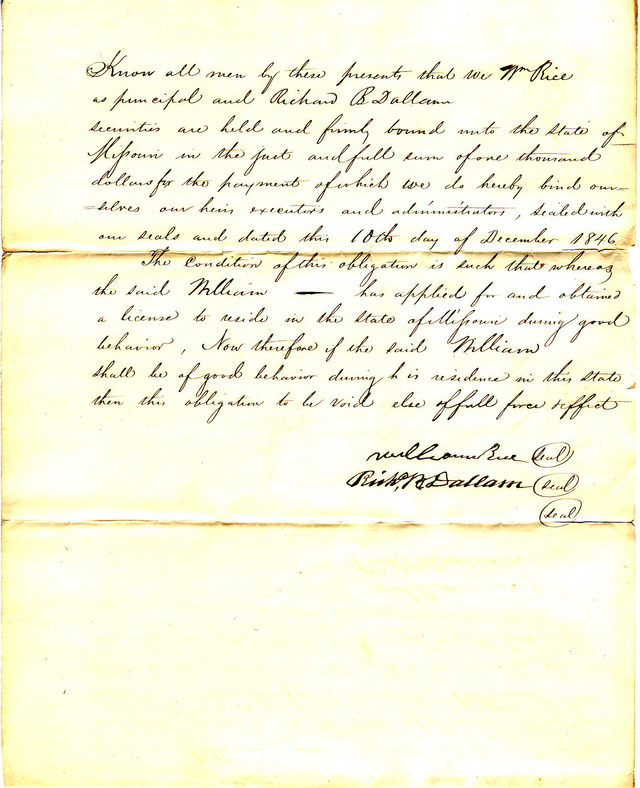 Know all men by these presents that we Wm Rice
as principal and Richard B Dallam
securities are held and firmly bound unto the State of
Missouri in the just and full sum of one thousand
dollars for the payment of which we do hereby bind our=
=selves our heirs executors and administrators, sealed with
our seals and dated this 10th day of December 1846
The Condition of this obligation is such that whereas
the said William — has applied for and obtained
a license to reside in the State of Missouri during good
behavior, Now therefore if the said William
shall be of good behavior during his residence in this State
then this obligation to be void else of full force & effect
William Rice (seal)
Richd. B. Dallam (seal)
(seal)